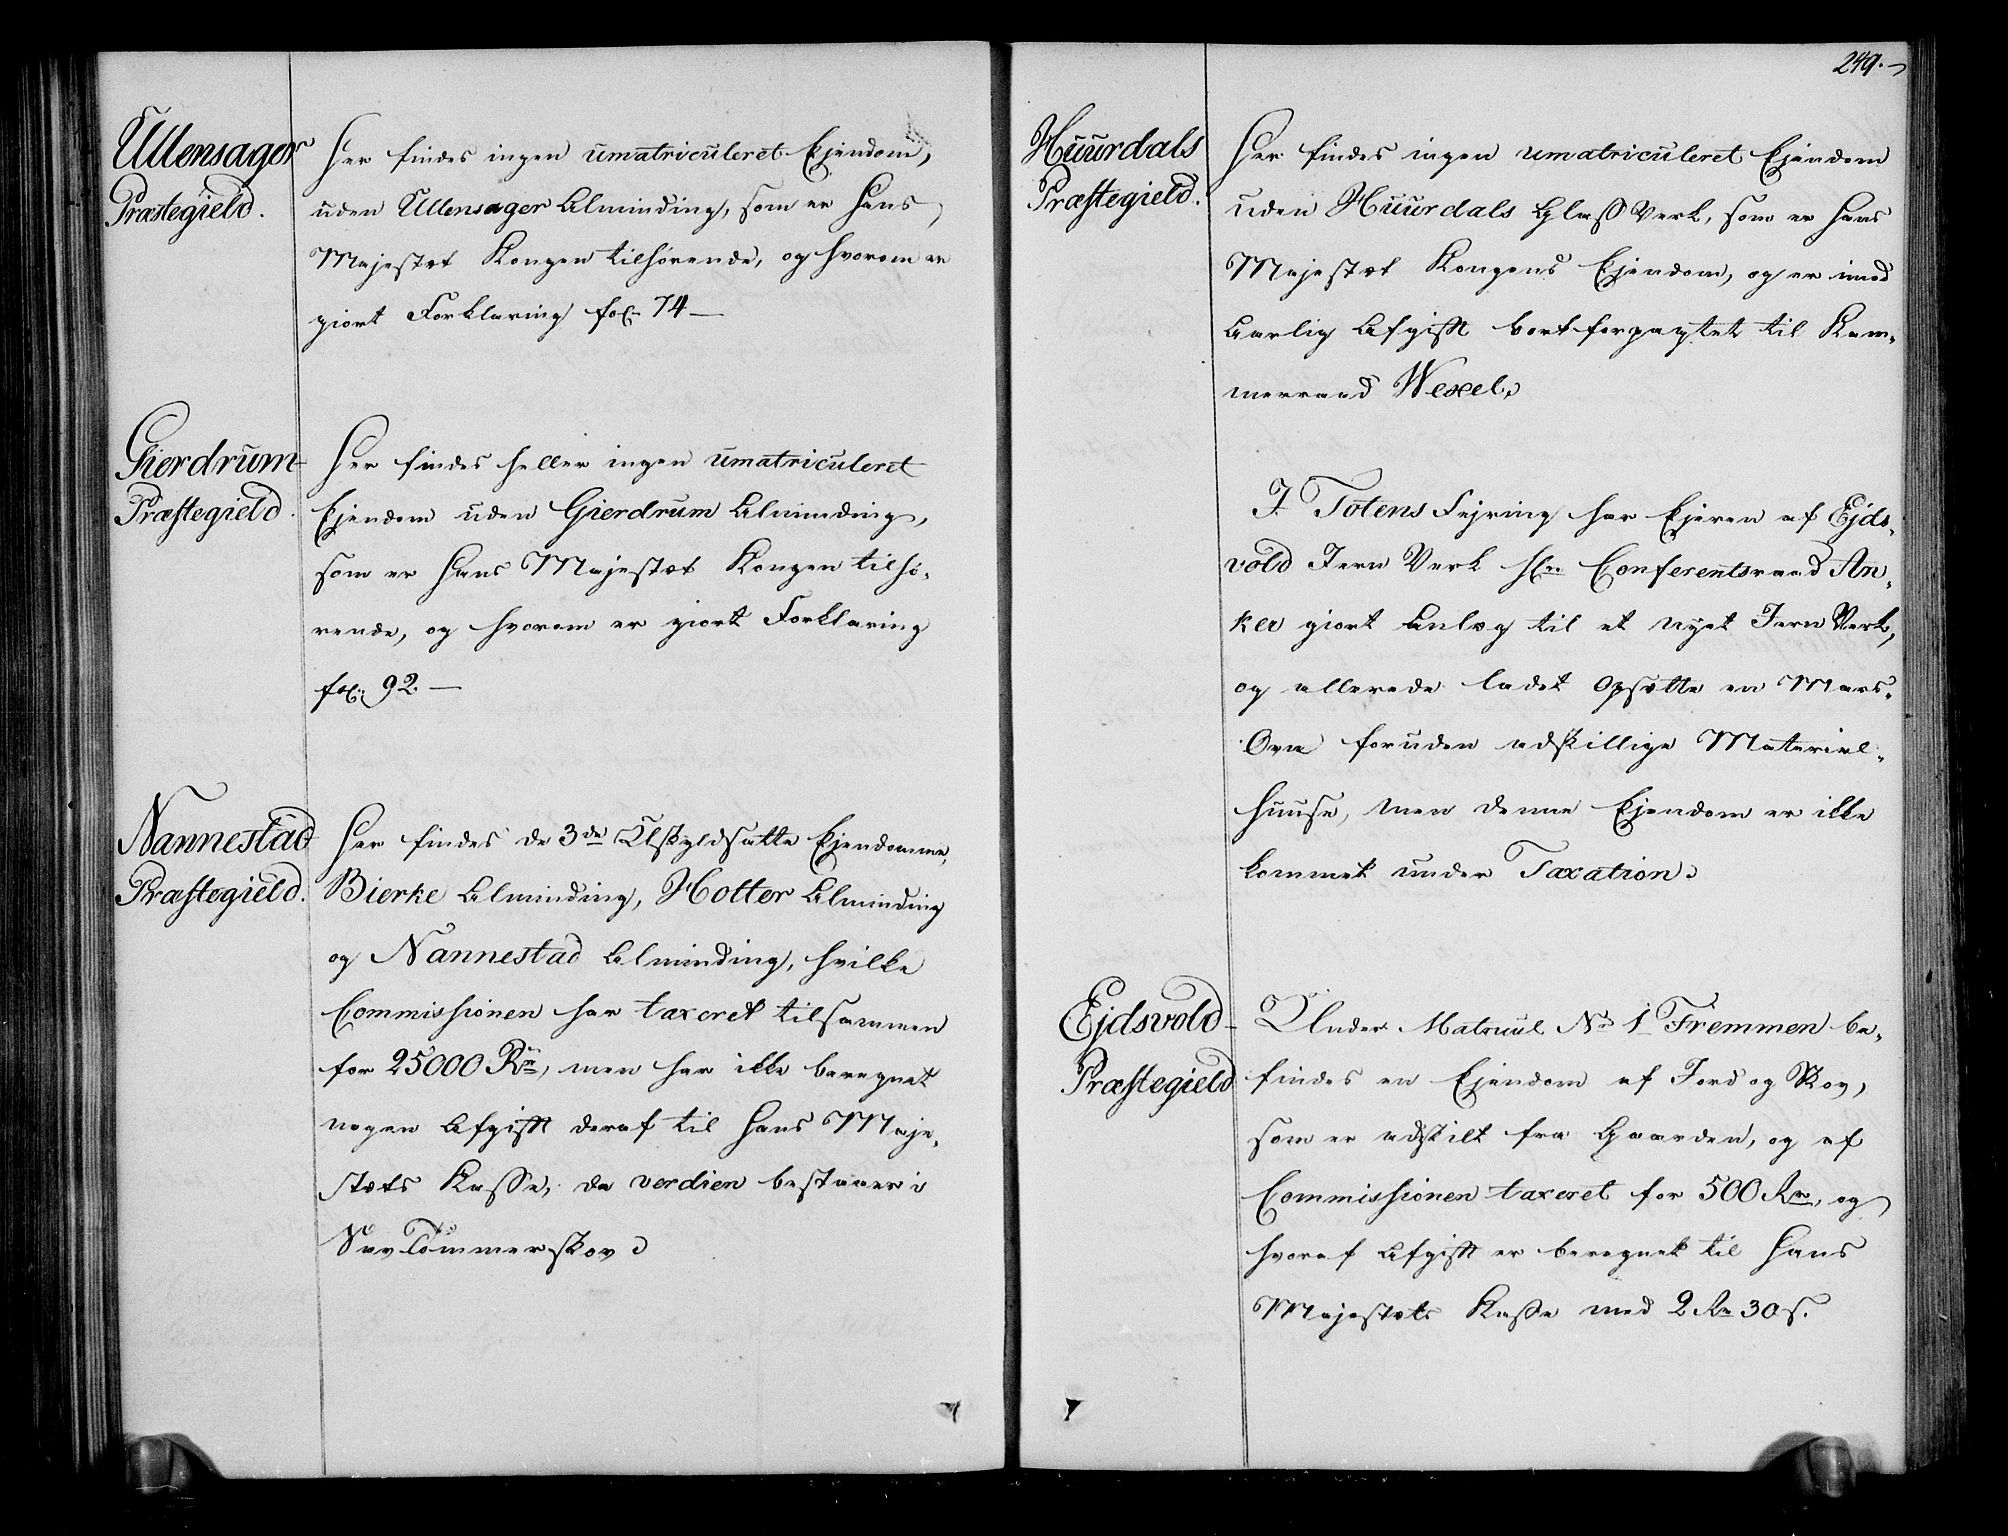 Ullensager
Præstegield.
Her findes ingen umatriculeret Ejendom,
uden Ullensager Alminding, som er Hans
Majestæt Kongen tilhörende, og hvorom er
giort Forklaring fol. 74 —
Gierdrum
Præstegield.
Her findes heller ingen umatriculeret
Ejendom uden Gierdrum Alminding,
som er Hans Majestæt Kongen tilhö-
rende, og hvorom er giort Forklaring
fol. 92. —
Nannestad
Præstegield.
Her findes de 3de Uskyldsatte Ejendomme,
Bierke Alminding, Hotter Alminding
og Nannestad Alminding, hvilke
Commissionen har taxeret tilsammen
for 25000 Rdr, men har ikke beregnet
nogen Afgift deraf til Hans Maje-
stæts Kasse, da verdien bestaaer i
Sav Tömmerskov
249.
Huurdals
Præstegield.
Her findes ingen umatriculeret Ejendom
uden Huurdals Glass Verk, som er Hans
Majestæt Kongens Ejendom, og er imod
Aarlig Afgift bortforpagtet til Kam-
merraad Wexel.
I Totens Fejring har Ejeren af Ejds-
vold Jern Verk Hr. Conferentsraad An-
ker giort Anlæg til et nyet Jern Verk,
og allerede ladet opsætte en Mars-
Ovn foruden adskillige Material-
huuse, men denne Ejendom er ikke
kommet under Taxation.
Ejdsvold
Præstegield
Under Matricul No 1 Fremmen be-
findes en Ejendom af Jord og Skov,
som er adskilt fra Gaarden, og af
Commissionen taxeret for 500 Rdr, og
hvoraf Afgift er beregnet til Hans
Majestæts Kasse med 2 Rdr 30 s.